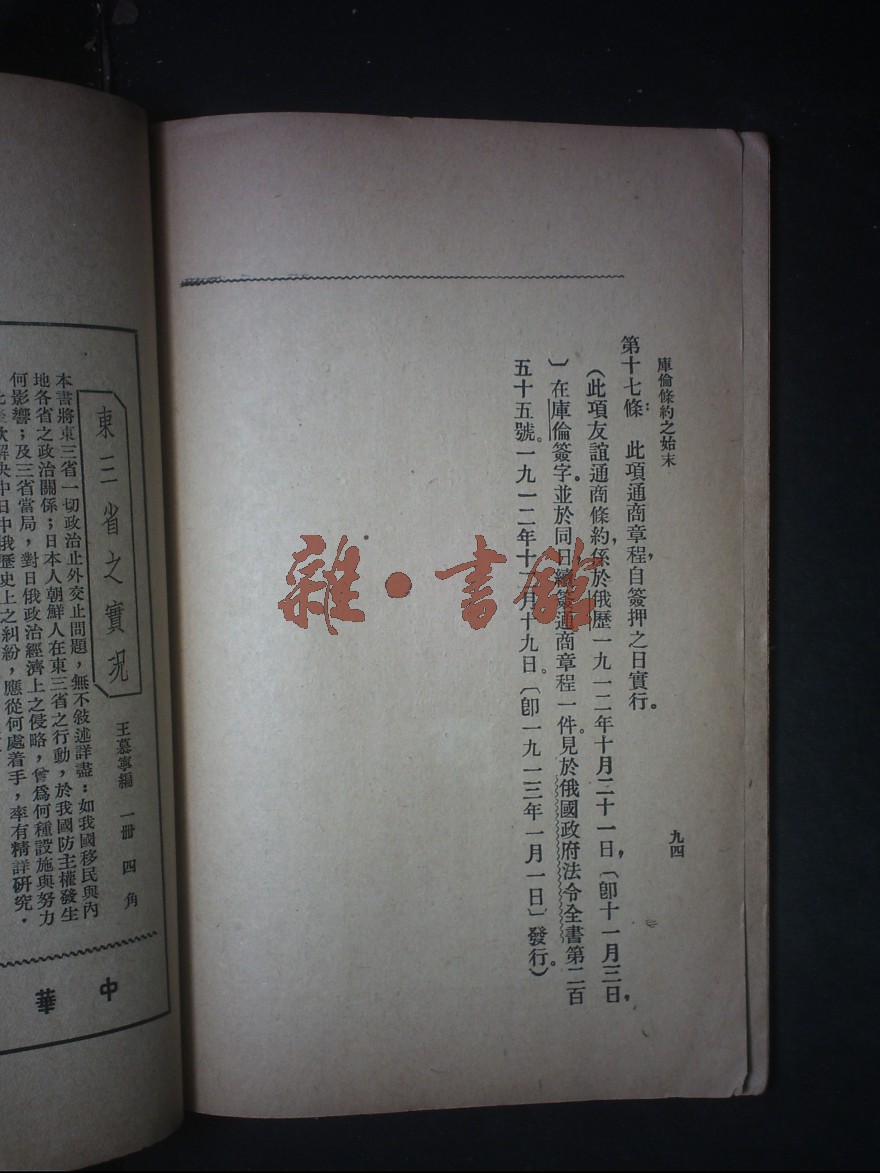 庫倫條約之始末
九四
第十七條：此項通商章程，自簽押之日實行。
（此項友誼通商條約，係於俄歷一九一二年十月二十一日，〔卽十一月三日，
〕在庫倫簽字。並於同日續簽通商章程一件。見於俄國政府法令全書第二百
五十五號。一九一二年十二月十九日。〔卽一九一三年一月一日〕發行。）
雜·書館
東三省之實況
王慕寧編 一冊 四角
本書將東三省一切政治止外交止問題，無不敍述詳盡：如我國移民與內
地各省之政治關係；日本人朝鮮人在東三省之行動，於我國防主權發生
何影響；及三省當局，對日俄政治經濟上之侵略，曾爲何種設施與努力
欲解決中日中俄歷史上之糾紛，應從何處着手，率有精詳研究．
中華